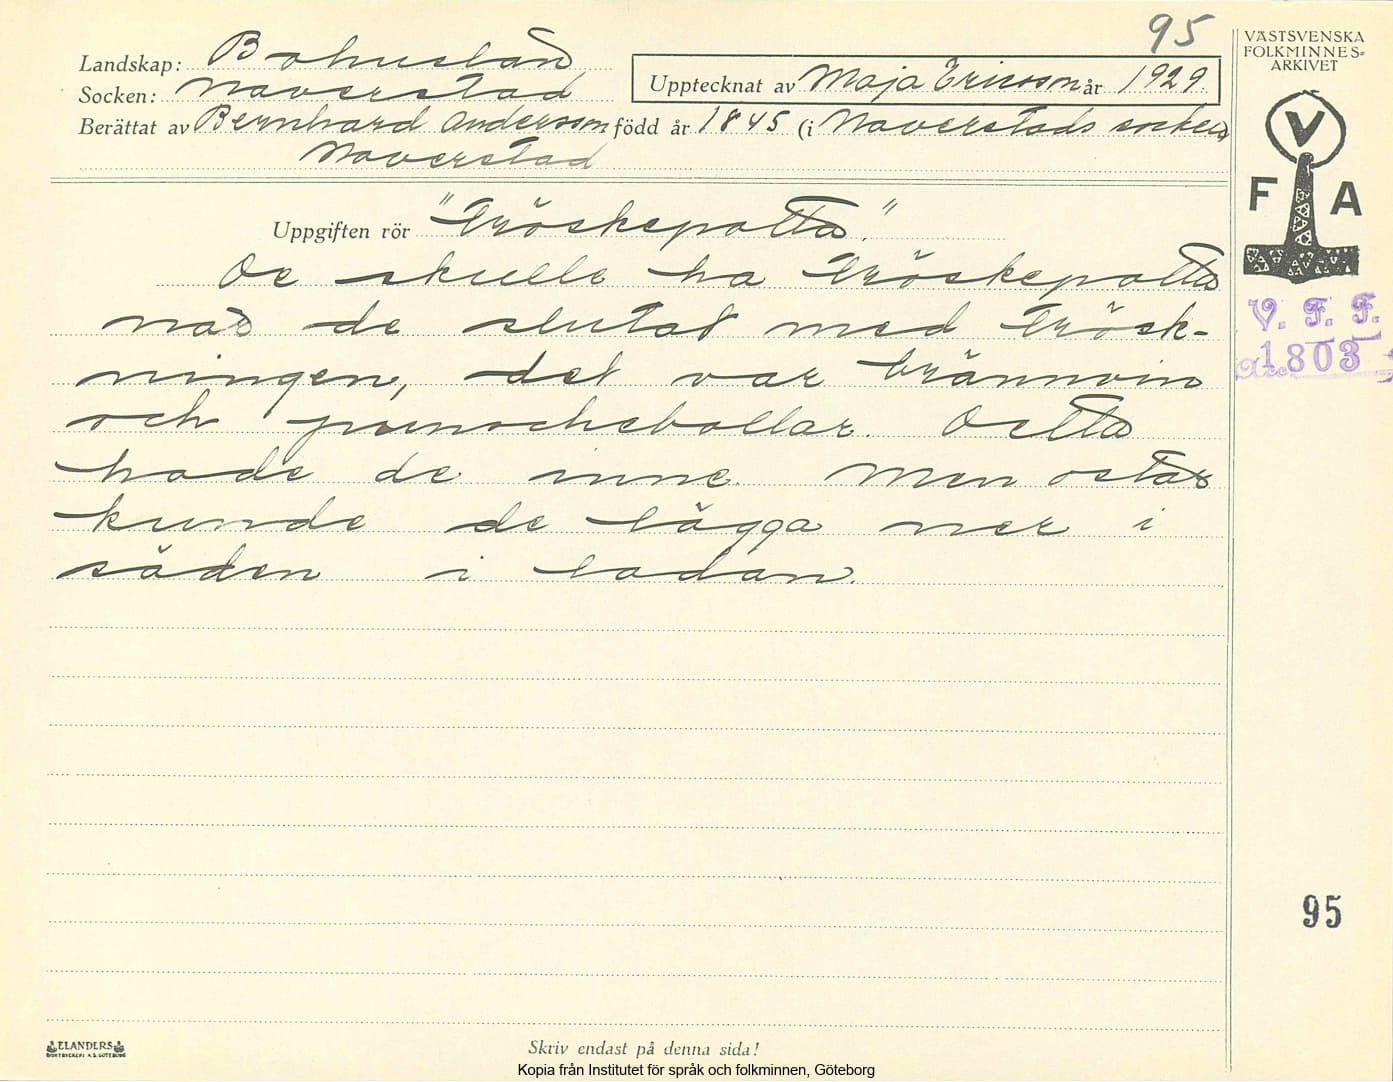 95
VÄSTSVENSKA
FOLKMINNES=
ARKIVET
Landskap: Bohuslän
Upptecknat av Maja Ericsson år 1929.
Socken: Naverstad
Berättat av Bernhard Andersson född år 1845 (i Naverstads socken)
Naverstad
V
F A
Uppgiften rör "Tröskepotta."
De skulle ha tröskepotta
när de slutat med trösk-
ningen, det var brännvin
och pannekebollar. Detta
hade de inne. Men ostar
kunde de lägga ner i
säden i ladan.
V. F. F.
1803
95
ELANDERS
BOKTRYCKERI A.B. GÖTEBORG
Skriv endast på denna sida!
Kopia från Institutet för språk och folkminnen, Göteborg